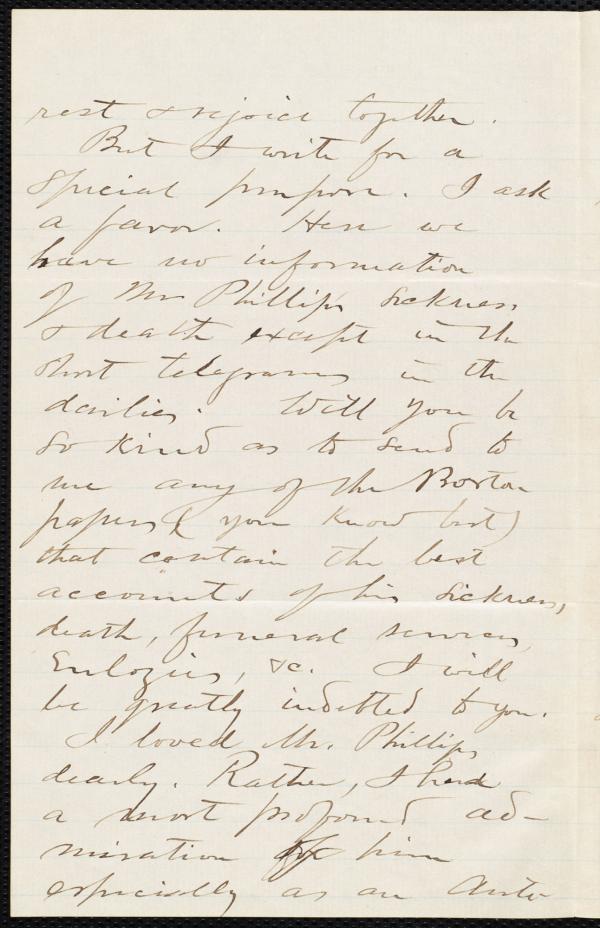 rest & rejoice together.
But I write for a
special purpose. I ask
a favor. Here we
have no information
of Mr Phillip's sickness
& death except in the
short telegrams in the
dailies. Will you be
so kind as to send to
me any of the Boston
papers (you know best)
that contain the best
accounts of his sickness,
death, funeral services,
Eulogies, &c. I will
be greatly indebted to you.
I loved Mr. Phillips
dearly. Rather, I had
a most profound ad-
miration for him
especially as an Anti